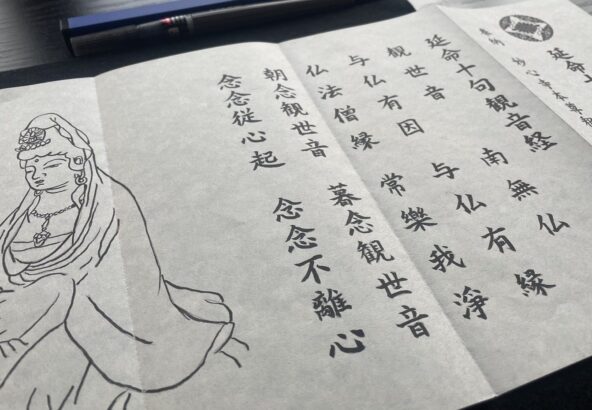 延命
奉納 妙心寺
延命十句観音経
観世音 南無仏
与仏有因 与仏有縁
仏法僧縁 常樂我淨
朝念観世音 暮念観世音
念念從心起 念念不離心